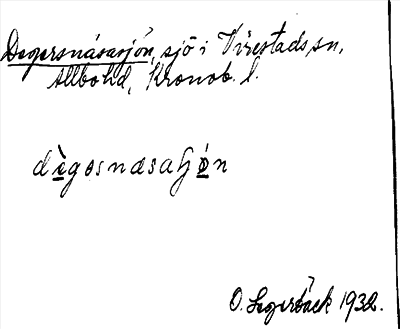 Degersnäsasjön, sjö i Virestads sn,
Allbo hd, Kronob. l.
dègosnasaʃǿn
O. Segerbäck 1932.